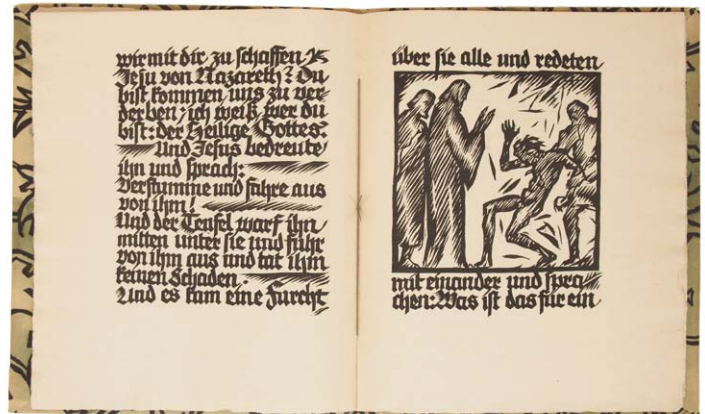 wir mit dir zu schaffen
Jesu von Nazareth? Du
bist kommen, uns zu ver-
derben; ich weiß, wer du
bist: der Heilige Gottes.
Und Jesus bedreute
ihn und sprach:
Verstumme und fahre aus
von ihm!
Und der Teufel warf ihn
mitten unter sie und fuhr
von ihm aus und tat ihm
keinen Schaden.
Und es kam eine Furcht
über sie alle und redeten
mit einander und spra-
chen: Was ist das für ein